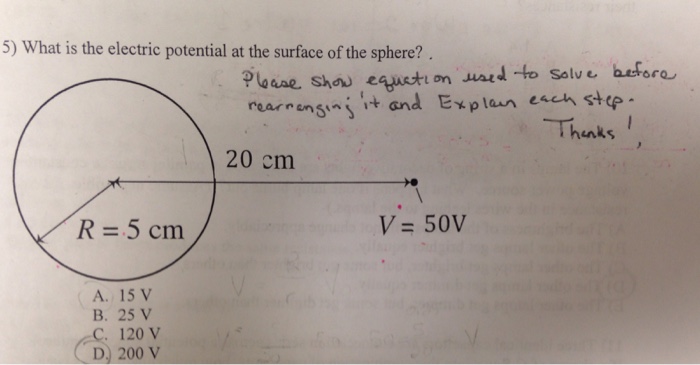 5) What is the electric potential at the surface of the sphere? .
Please show equation used to solve before
rearranging it and Explain each step.
Thanks!
20 cm
R = 5 cm
V = 50V
A. 15 V
B. 25 V
C. 120 V
D. 200 V